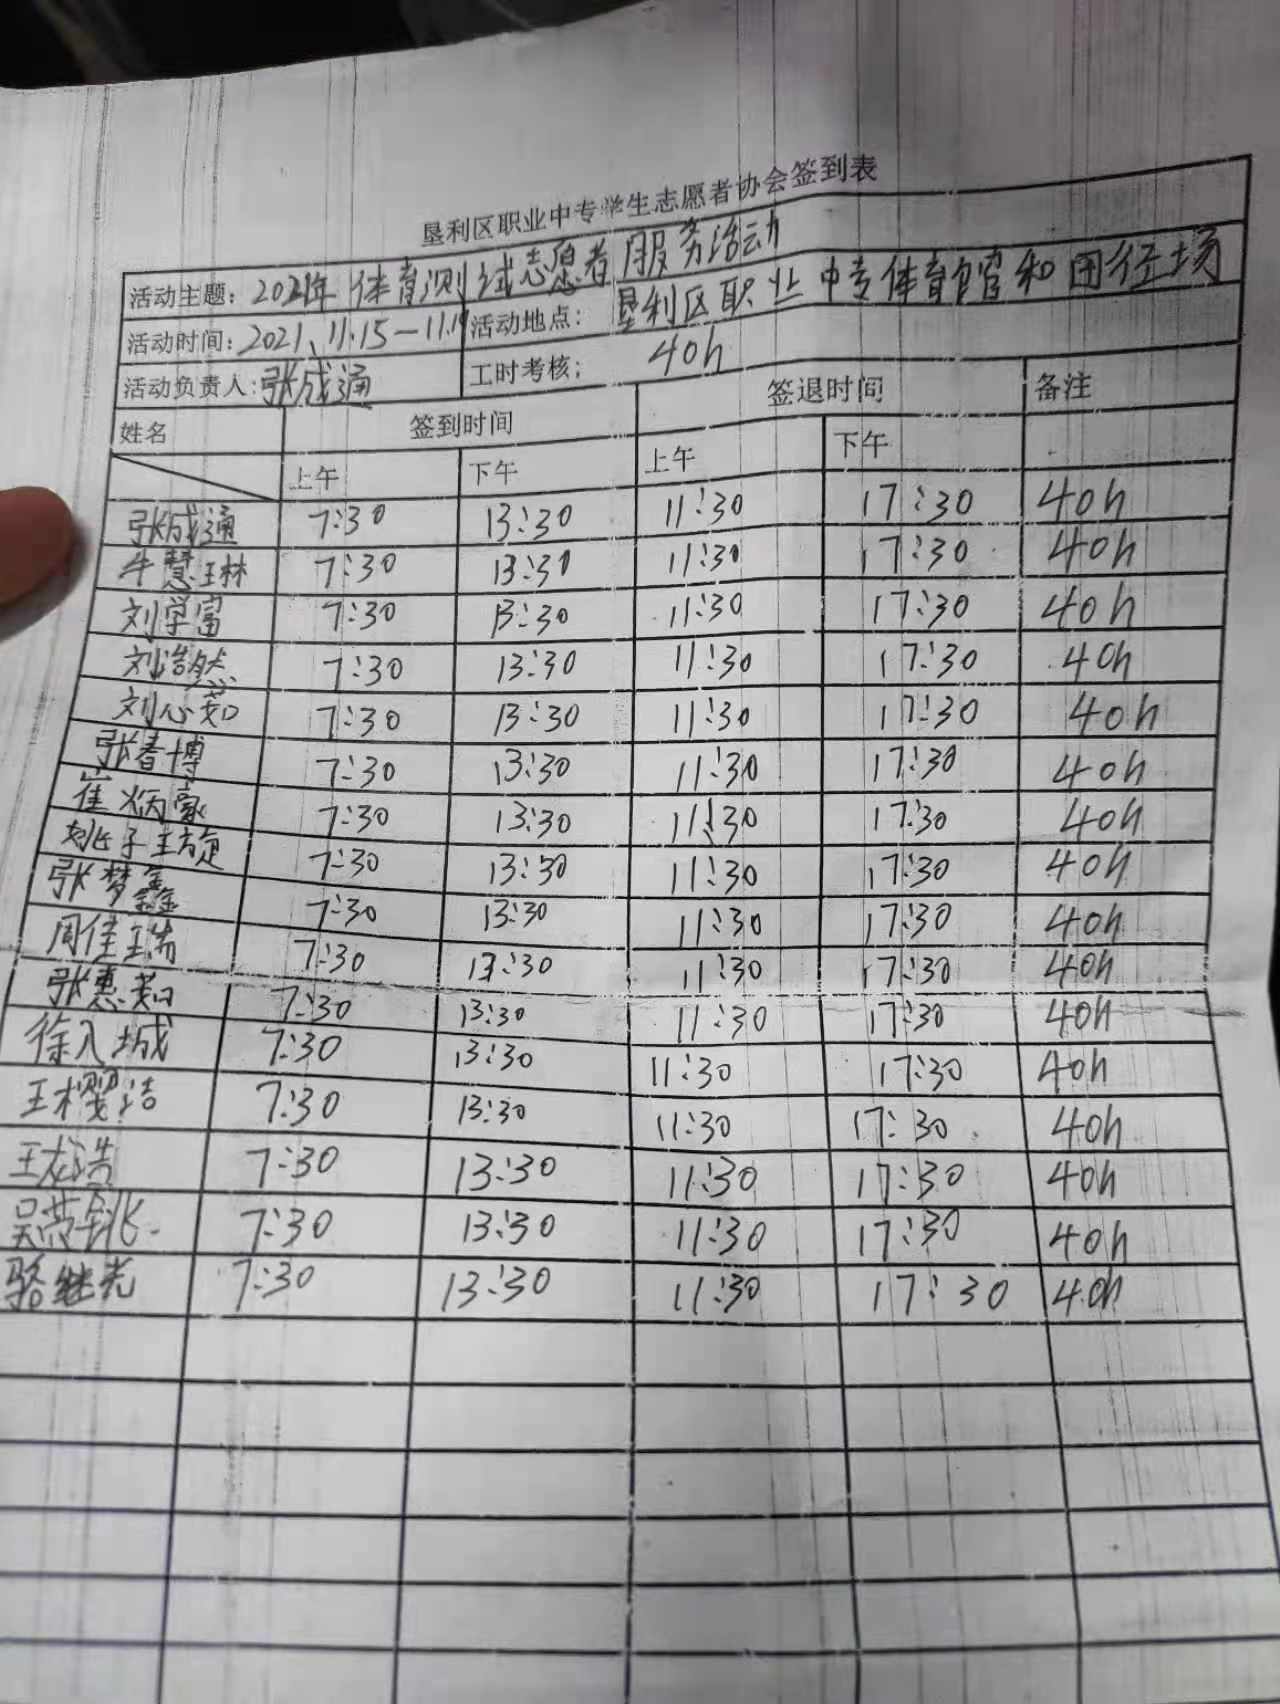 垦利区职业中专学生志愿者协会签到表
活动主题: 2021年体育测试志愿者服务活动
活动时间: 2021、11.15—11.19 活动地点: 垦利区职业中专体育馆和田径场
活动负责人: 张成通 工时考核; 40h
姓名 签到时间 签退时间 备注
上午 下午 上午 下午
张成通 7:30 13:30 11:30 17:30 40h
牛慧琳 7:30 13:30 11:30 17:30 40h
刘学富 7:30 13:30 11:30 17:30 40h
刘浩然 7:30 13:30 11:30 17:30 40h
刘心茹 7:30 13:30 11:30 17:30 40h
张春博 7:30 13:30 11:30 17:30 40h
崔炳豪 7:30 13:30 11:30 17:30 40h
姚子璇 7:30 13:30 11:30 17:30 40h
张梦鑫 7:30 13:30 11:30 17:30 40h
周佳瑞 7:30 13:30 11:30 17:30 40h
张惠茹 7:30 13:30 11:30 17:30 40h
徐入城 7:30 13:30 11:30 17:30 40h
王樱洁 7:30 13:30 11:30 17:30 40h
王龙浩 7:30 13:30 11:30 17:30 40h
7:30 13:30 11:30 17:30 40h
骆继尧 7:30 13:30 11:30 17:30 40h